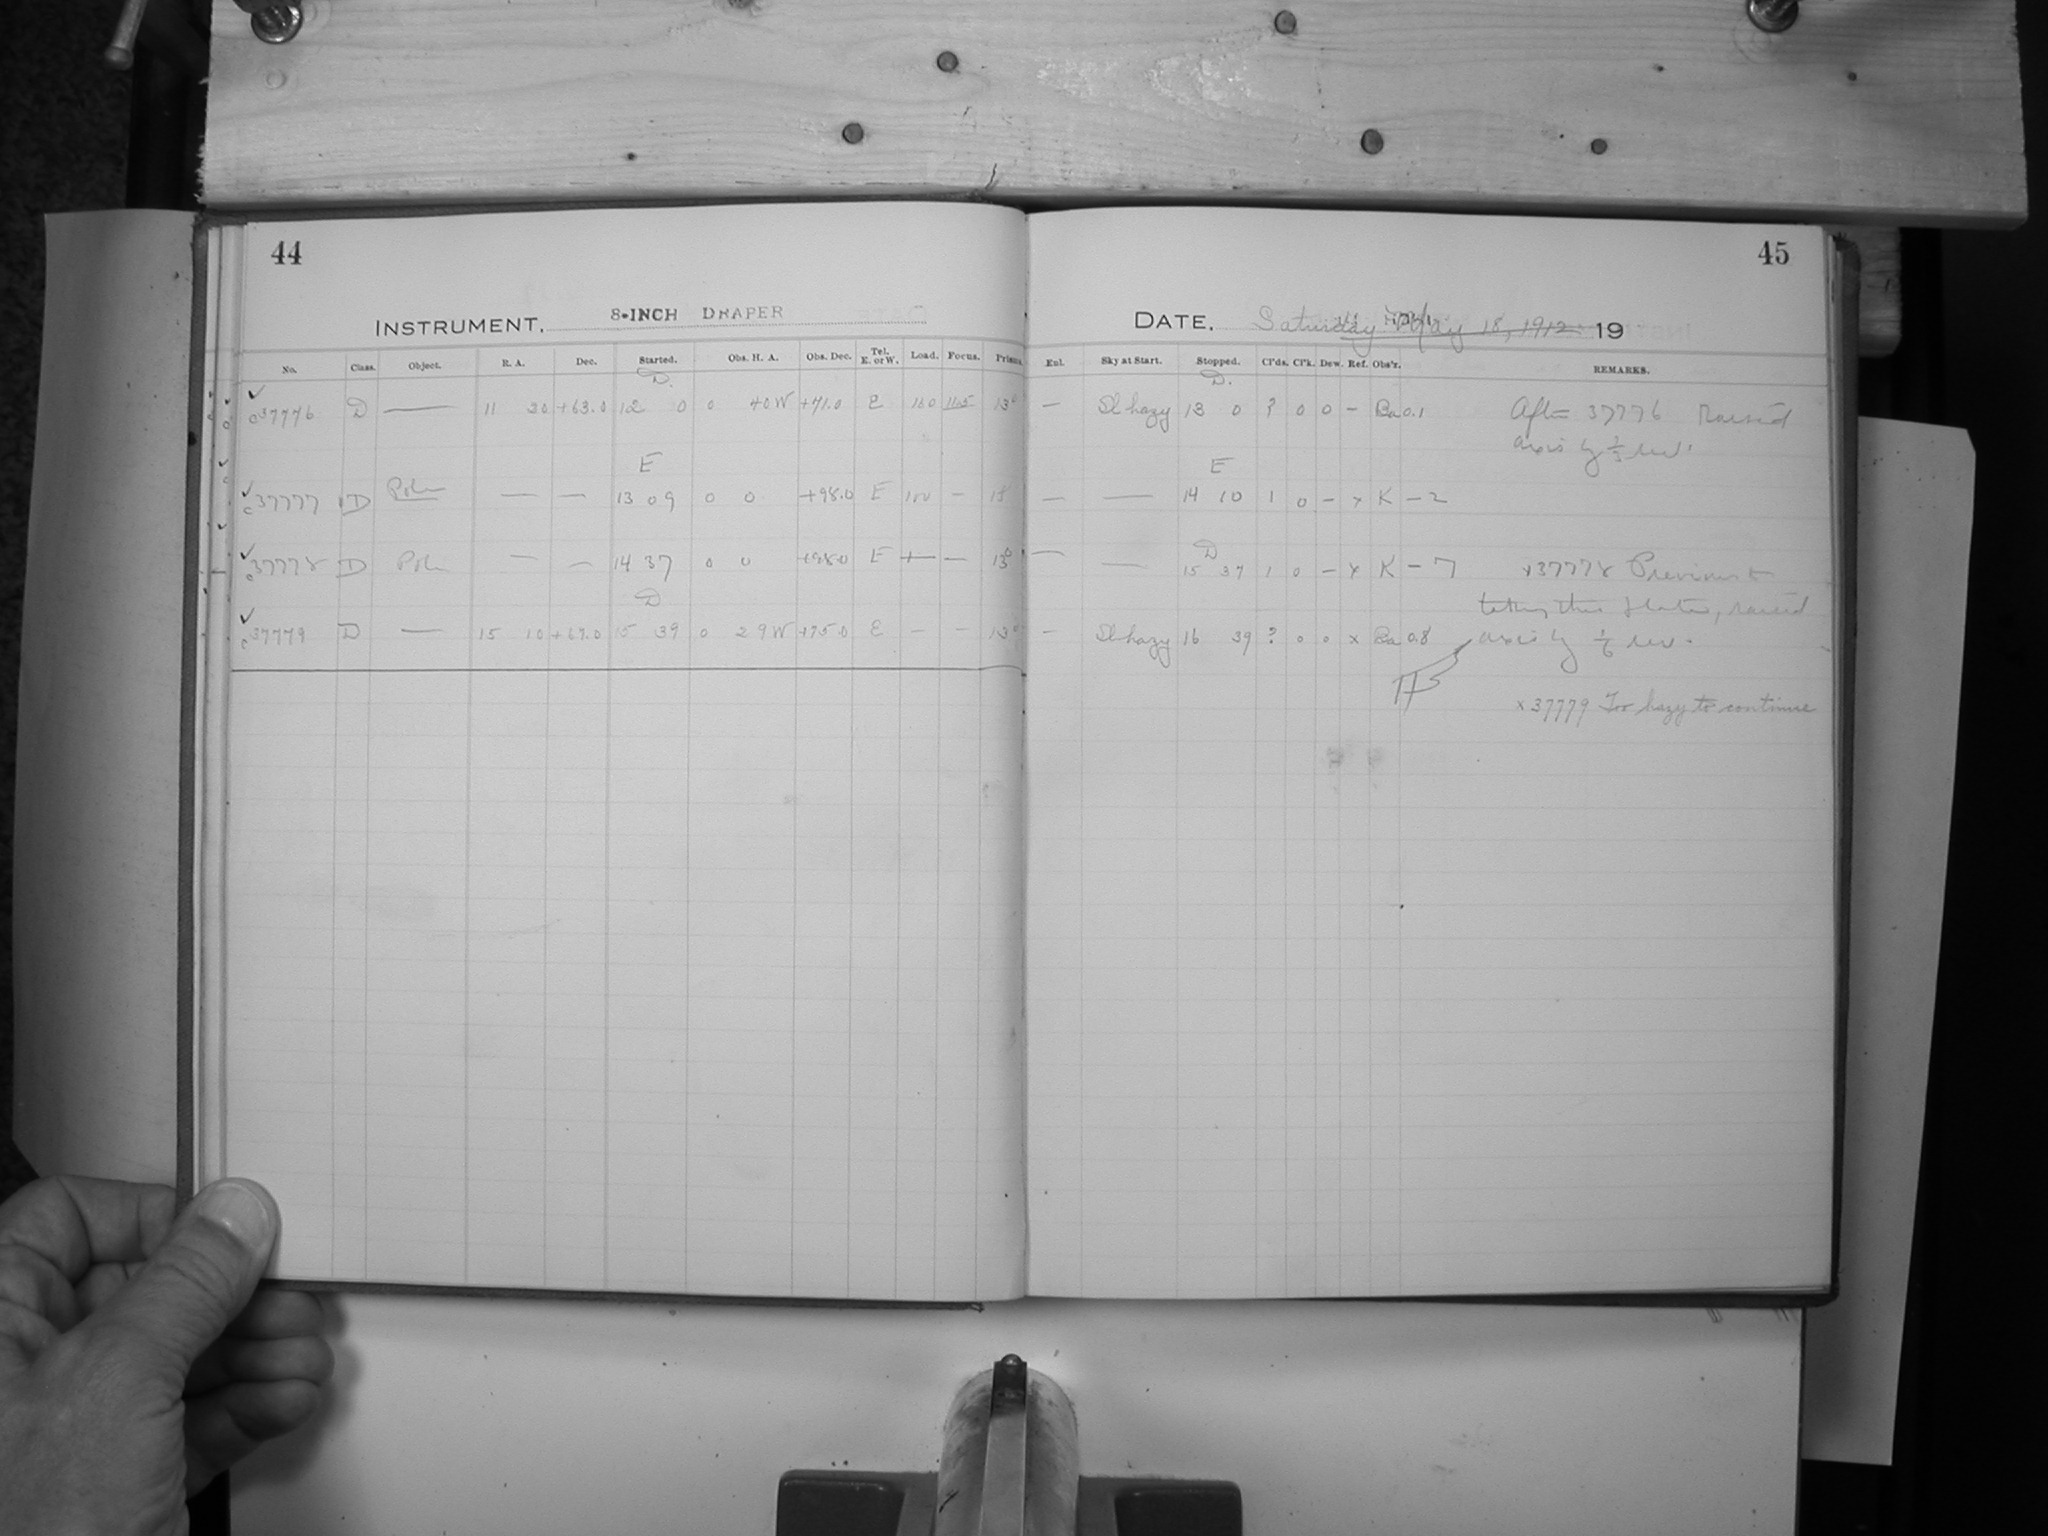 44
INSTRUMENT, 8-INCH DRAPER
No. Class. Object. R. A. Dec. Started. Obs. H. A. Obs. Dec. Tel. E. or W. Load. Focus. Prism.
D.
✓ c37776 D — 11 30 +63.0 12 0 0 40 W +71.0 E 100 11.5 13°
E
✓ c37777 D Pole — — 13 09 0 0 +98.0 E 100 — 13
✓ c37778 D Pole — — 14 37 0 0 +98.0 E — — 13°
D
✓ c37779 D — 15 10 +67.0 15 39 0 29 W +75.0 E — — 13°
45
DATE, Saturday May 18, 1912 19
Eul. Sky at Start. Stopped. Cl'ds. Cl'k. Dew. Ref. Obs'r. REMARKS.
D.
— Sl hazy 13 0 ? 0 0 — Ba 0.1 After 37776 Raised
axis by rev.
E
— — 14 10 1 0 — x K — 2
D
— — 15 37 1 0 — x K — 7 x37778 Previous to
taking this plate, raised
— Sl hazy 16 39 ? 0 0 x Ba 0.8 axis by 1/6 rev.
x 37779 Too hazy to continue